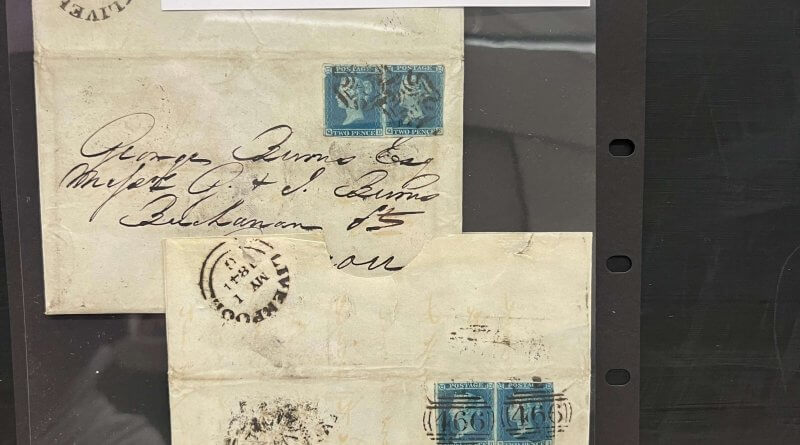 LIVER
POSTAGE POSTAGE
TWO PENCE TWO PENCE
George Burns Esq
Messrs G. & J. Burns
Buchanan St
LIVERPOOL
MY 1
1841
POSTAGE POSTAGE
466 466